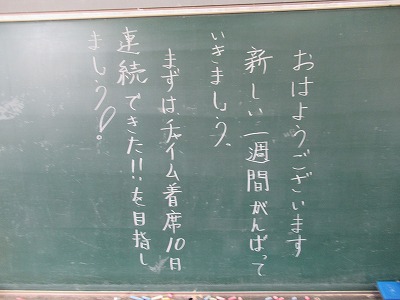 おはようございます
新しい一週間がんばって
いきましょう、
まずはチャイム着席10日
連続できた!!を目指し
ましょう!。